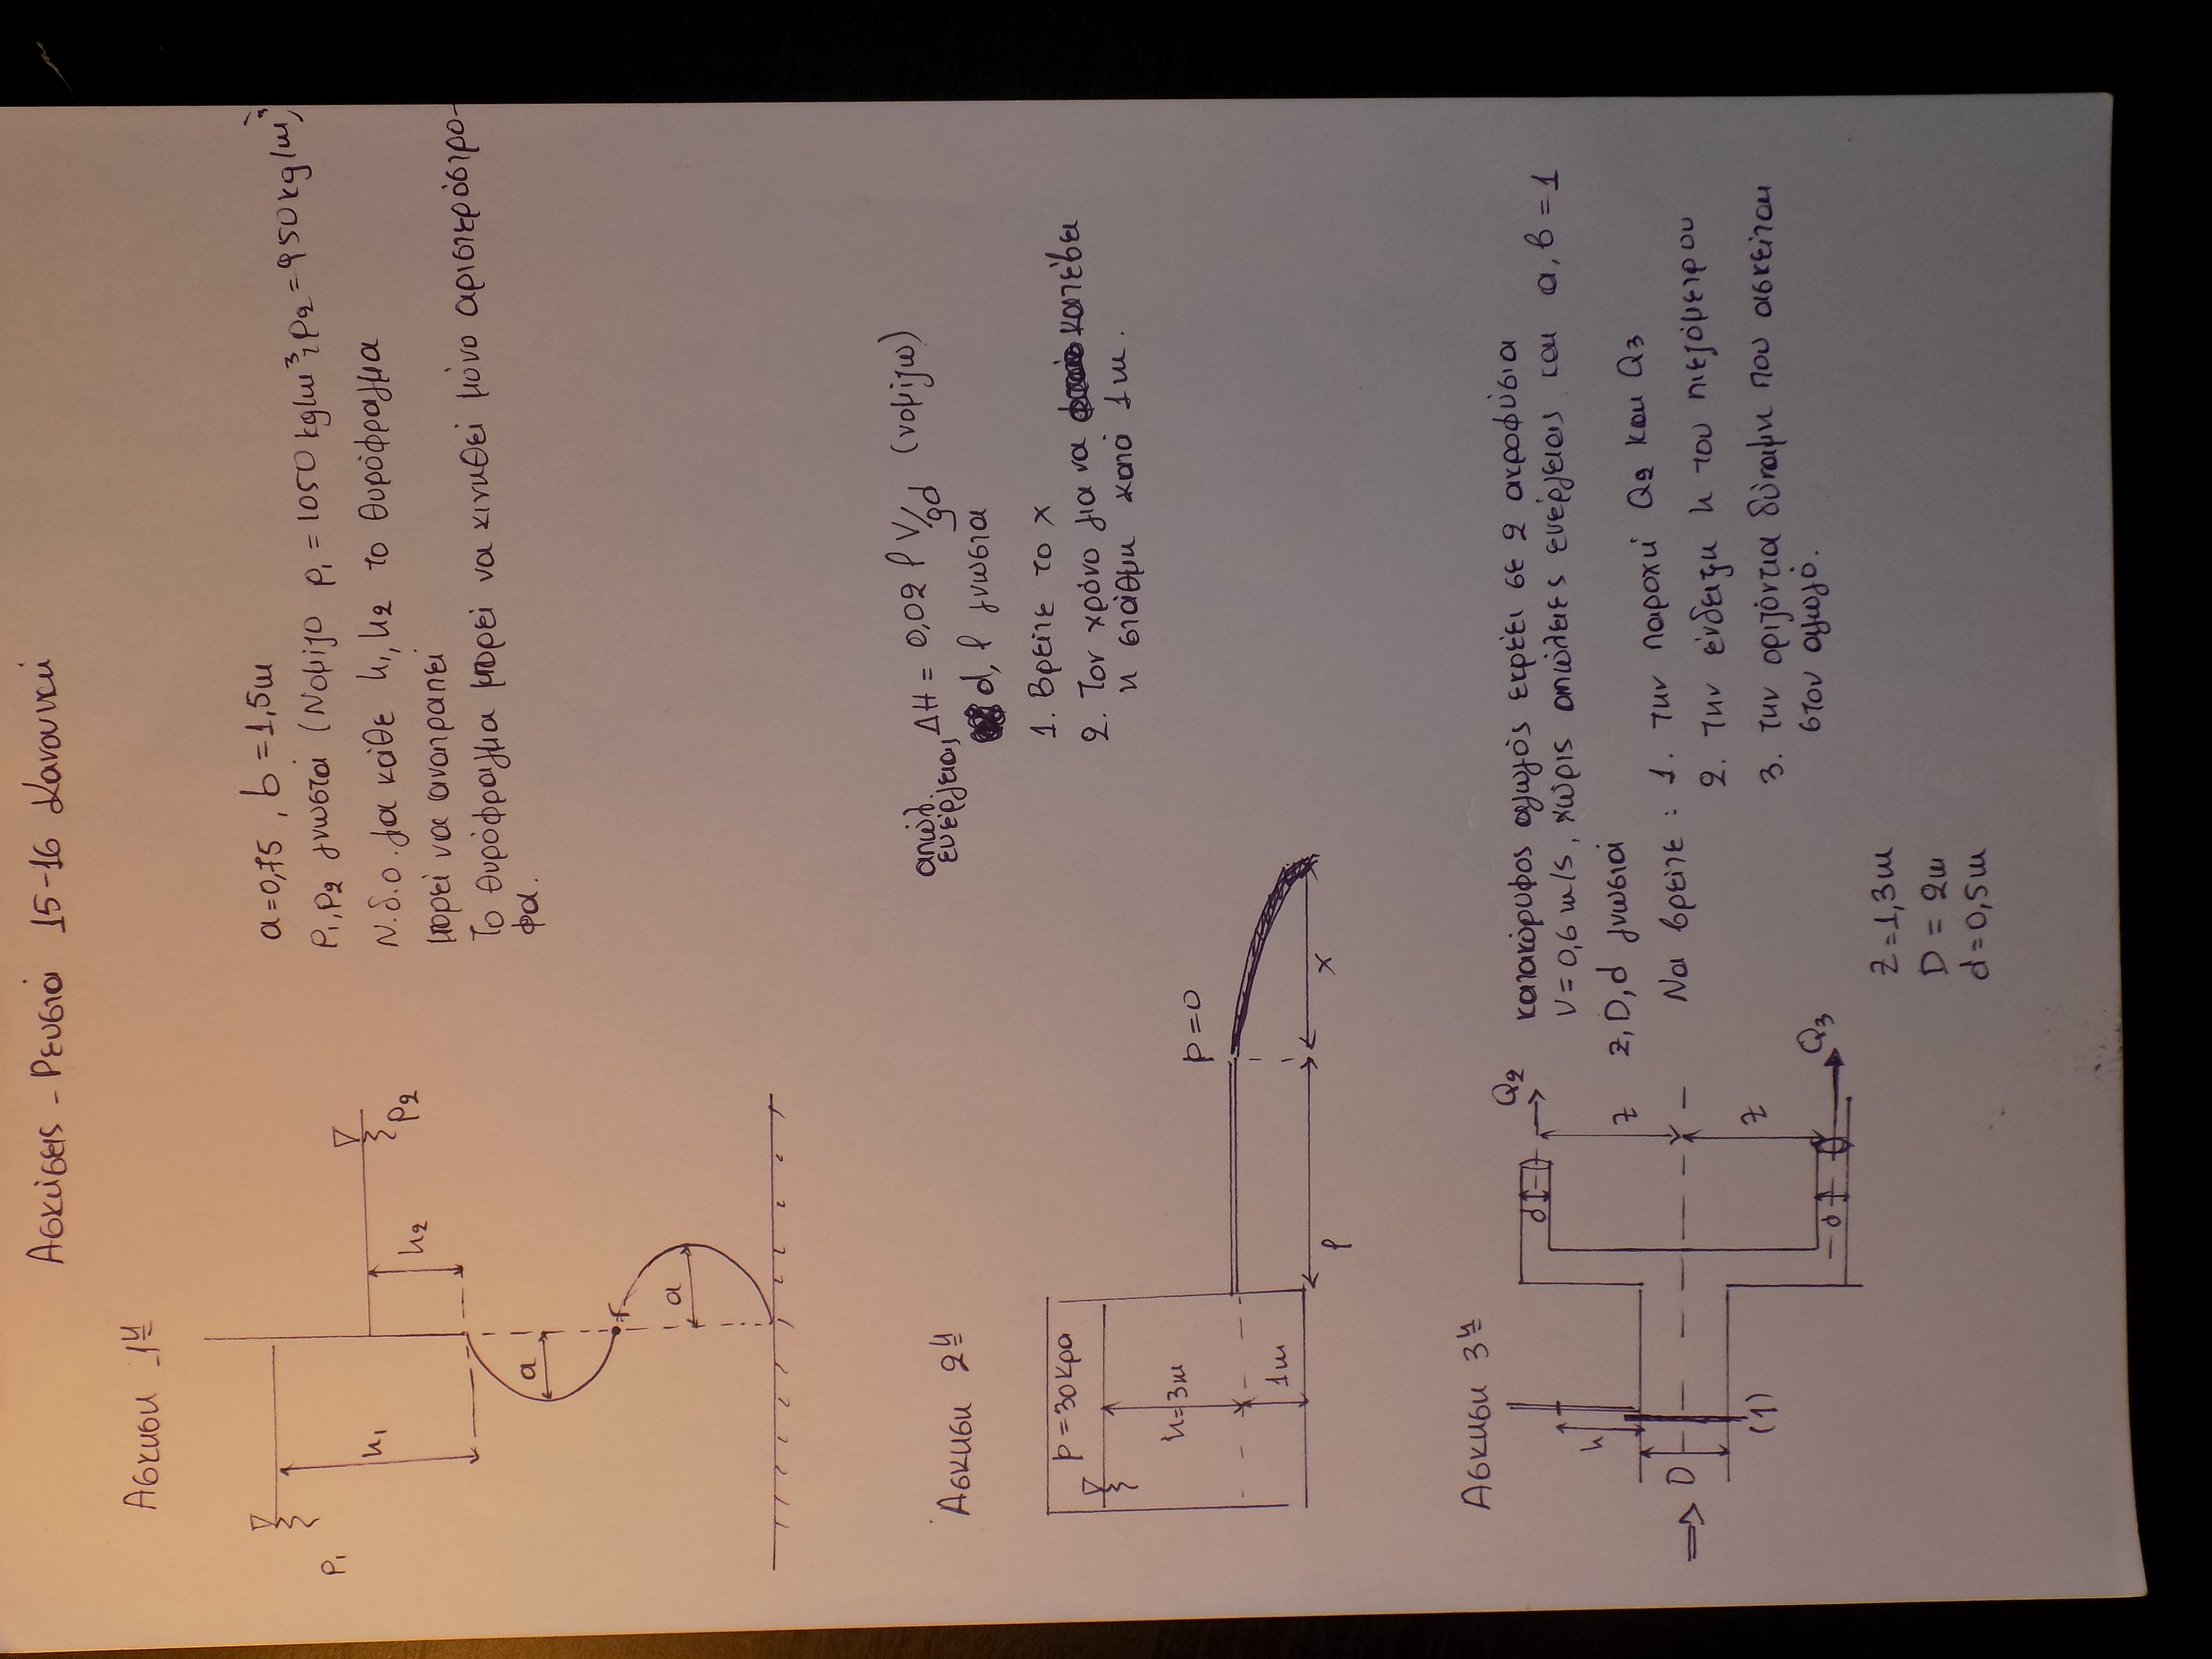 Ασκήσεις - Ρευστά 15-16 Κανονική
Άσκηση 1η
ρ₁
h₁
h₂
ρ₂
a
a
a=0,75, b=1,5m
ρ₁, ρ₂ γνωστά (Νομίζο ρ₁ = 1050 kg/m³, ρ₂ = 950 kg/m³)
Ν.δ.ο. για κάθε h₁, h₂ το θυρόφραγμα
μπορεί να ανατραπεί
Το θυρόφραγμα μπορεί να κινηθεί μόνο αριστερόστρο-
φα.
Άσκηση 2η
p=30kpa
h=3m
1m
p=0
l
x
απώλ.
ενέργειας ΔH = 0,02 l V/gd (νομίζω)
d, l γνωστα
1. Βρείτε το x
2. Τον χρόνο για να κατέβει
η στάθμη κατά 1m.
Άσκηση 3η
h
D
(1)
d
d
z
z
Q₂
Q₃
κατακόρυφος αγωγός εκρέει σε 2 ακροφύσια
V=0,6 m/s, χωρίς απώλειες ενέργειας και α, β=1
z, D, d γνωστά
Να βρείτε: 1. την παροχή Q₂ και Q₃
2. την ένδειξη h του πιεζόμετρου
3. την οριζόντια δύναμη που ασκείται
στον αγωγό.
z=1,3m
D=2m
d=0,5m